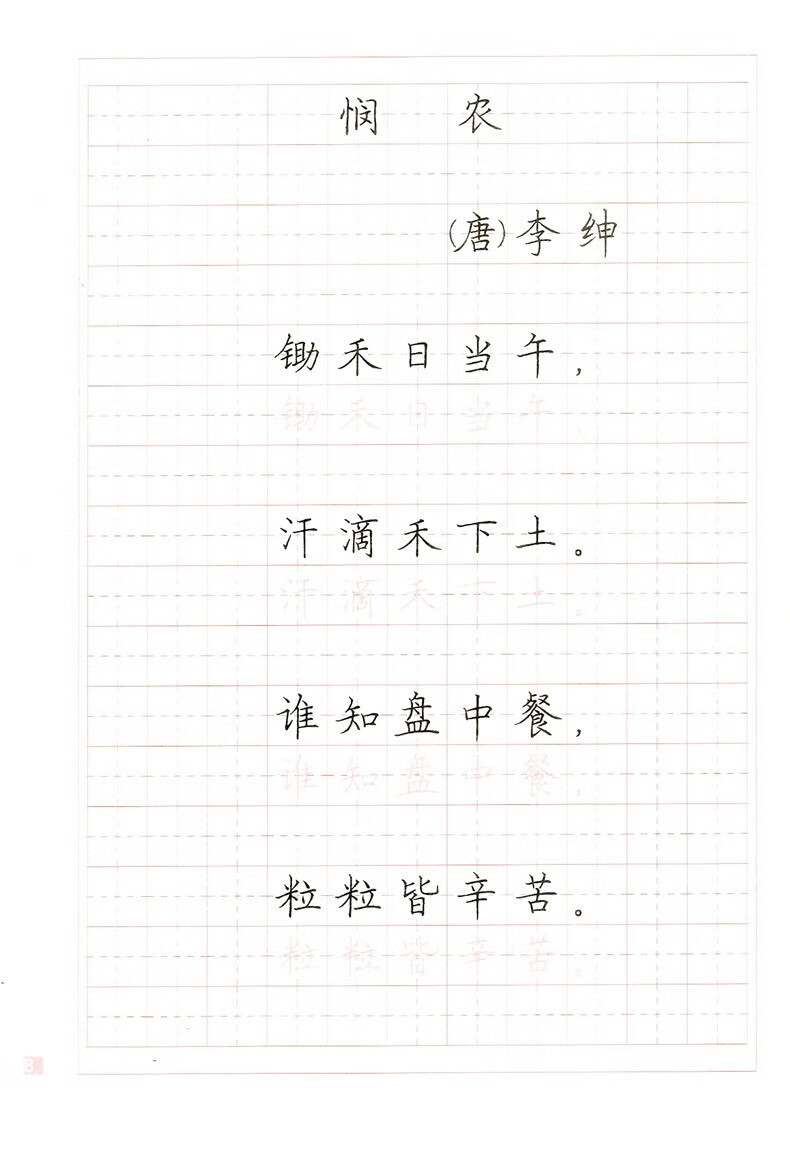 悯 农
(唐)李绅
锄禾日当午，
锄禾日当午，
汗滴禾下土。
汗滴禾下土。
谁知盘中餐，
谁知盘中餐，
粒粒皆辛苦。
粒粒皆辛苦。
8